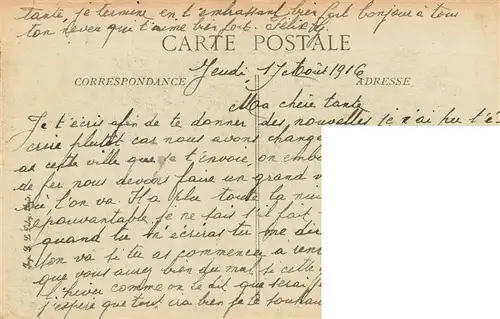 tante, je termine en t'embrassant bien fort bonjour à tous
ton neveu qui t'aime bien fort. Félix
CARTE POSTALE
CORRESPONDANCE
ADRESSE
Jeudi 17 Août 1916
Ma chère tante
Je t'écris afin de te donner des nouvelles je n'ai pu t'é
crire plutôt car nous avons change
as cette ville que je t'envoie, on emba
de fer nous devons faire un grand v
où l'on va. Il a plu toute la nui
épouvantable je ne sais s'il fait
quand tu m'écriras tu me di
on va si tu as commencer à
que vous aurez bien du mal, si cette
l'hiver comme on le dit que serai
j'espère que tout ira bien je te souhai